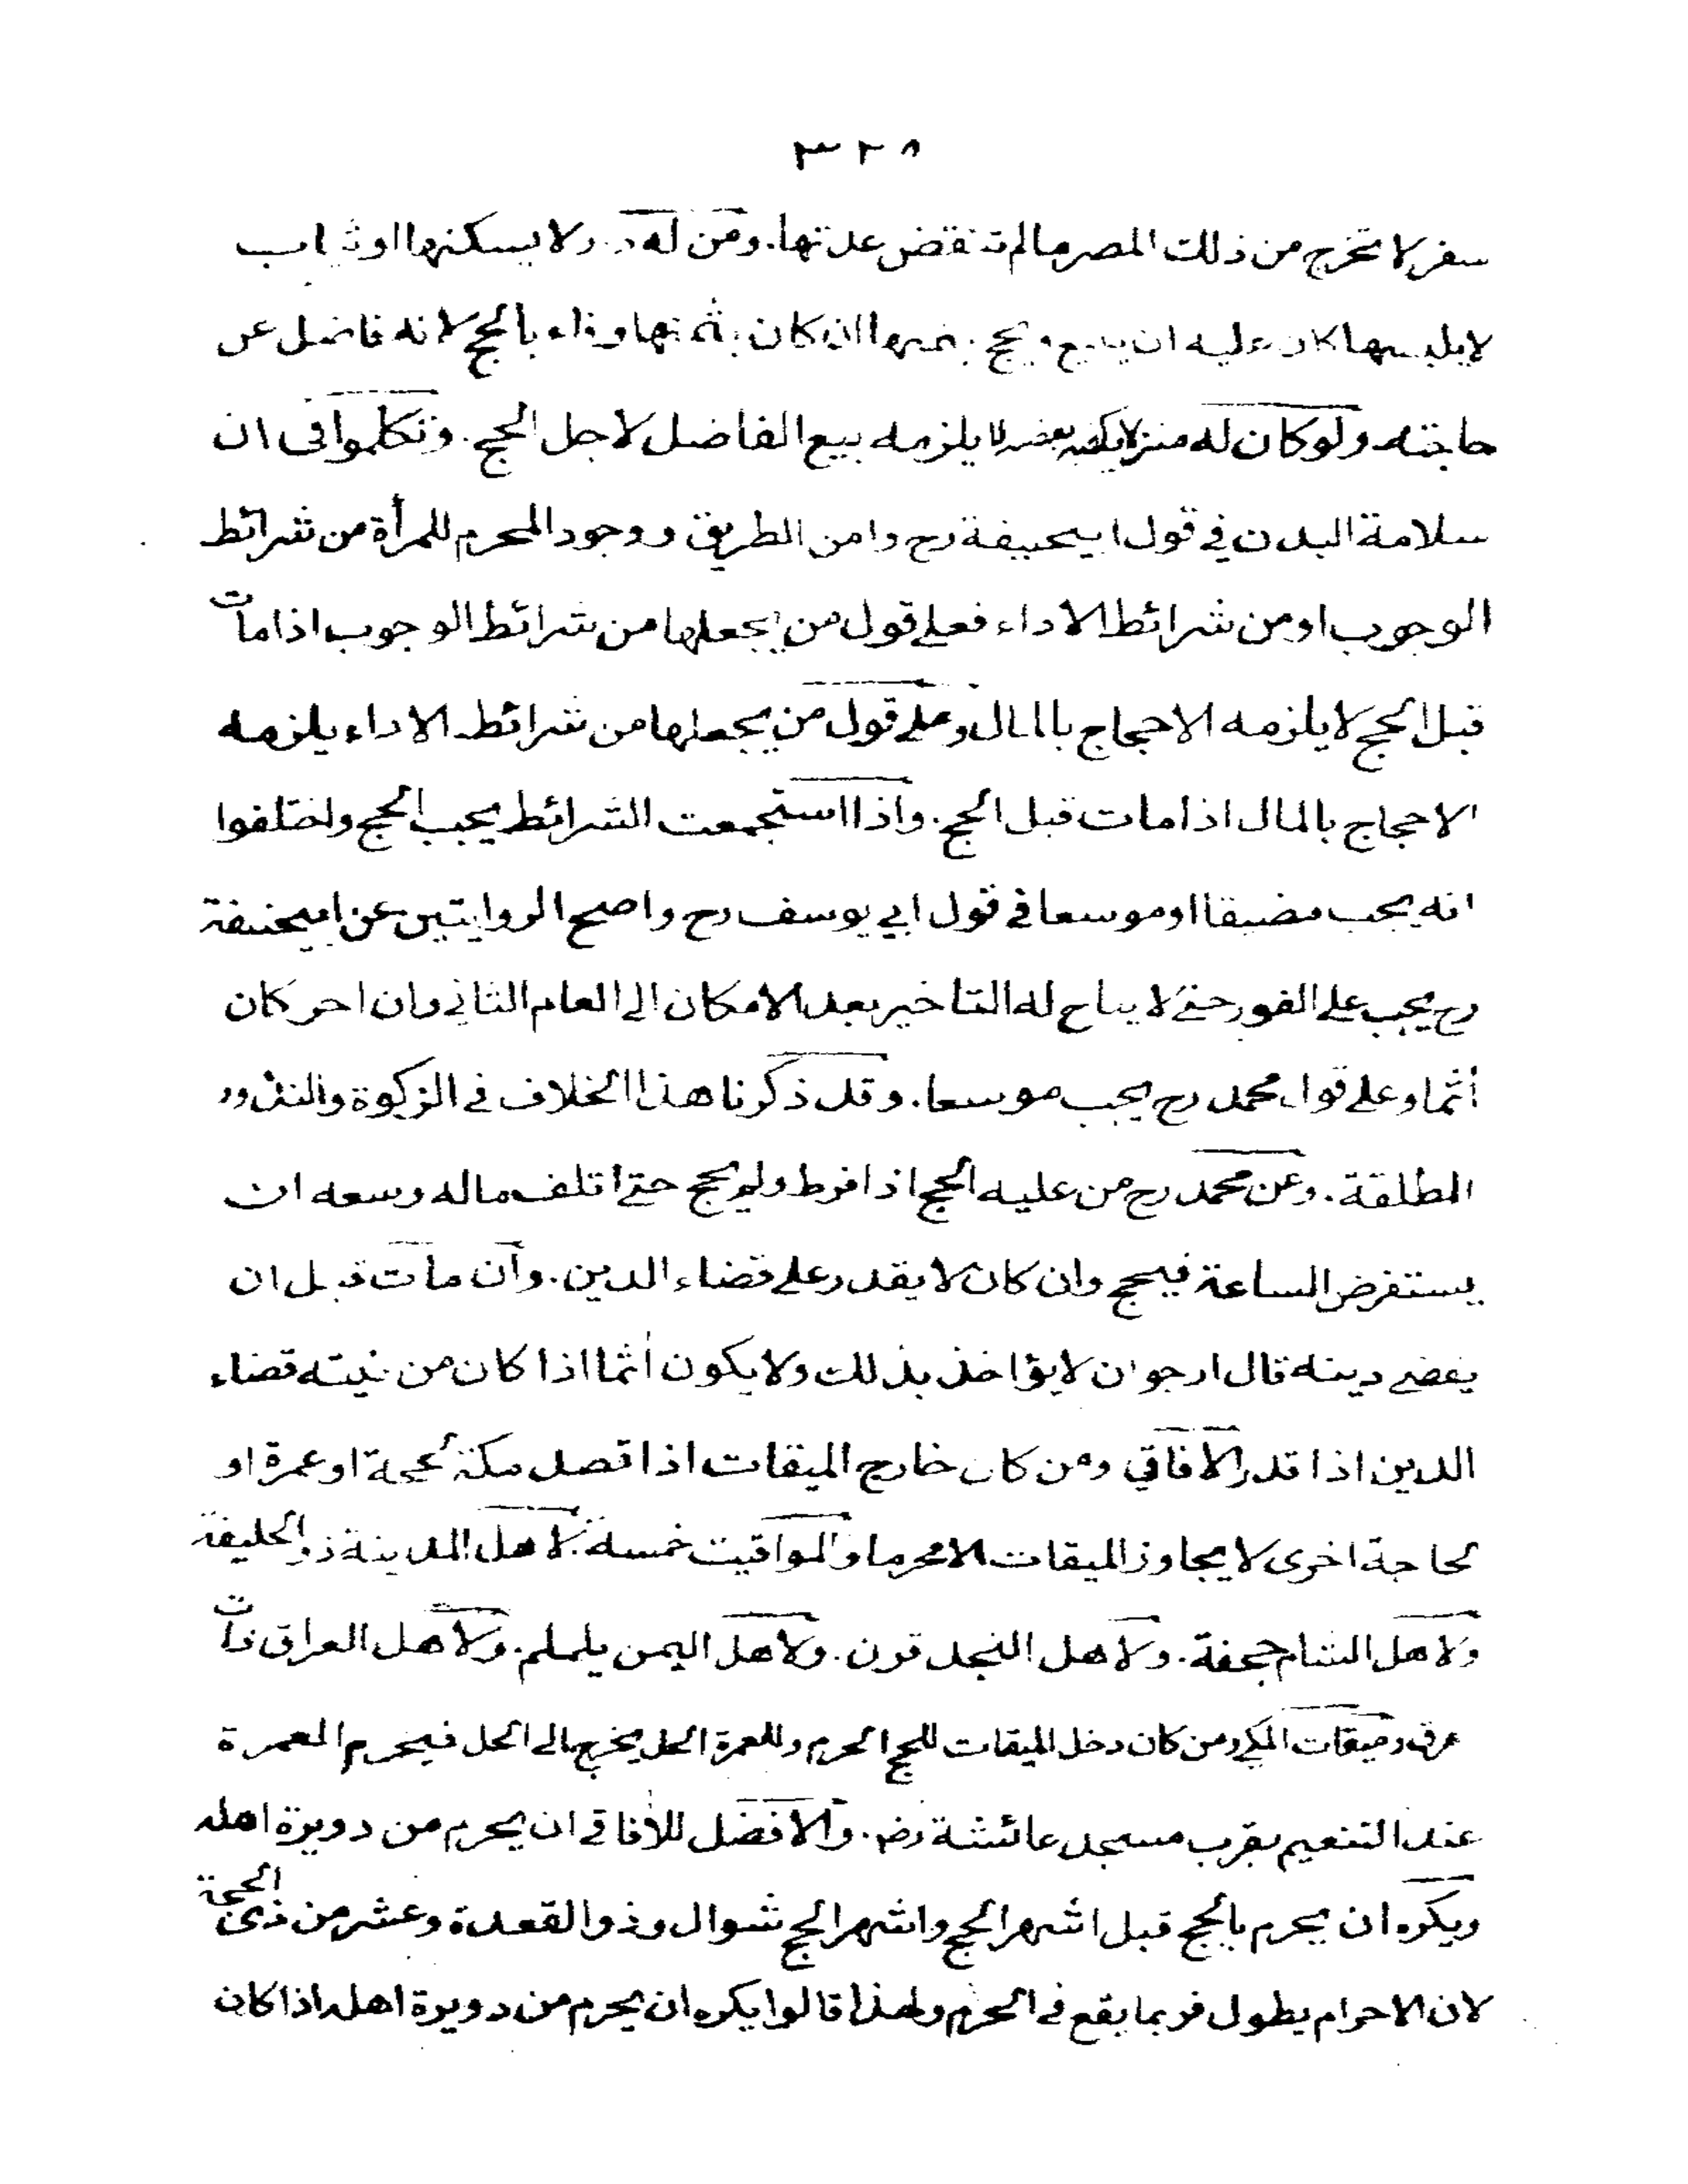 ٣٢٨
سفر لا تخرج من ذلك المصر مالم تنقض عدتها. ومن له دور لا يسكنها او ثياب
لا يلبسها كان عليه ان يبيع ويحج بثمنها ان كان بثمنها وفاء بالحج لانه فاضل عن
حاجته ولو كان له منزل يكفيه بعضه لا يلزمه بيع الفاضل لاجل الحج. وتكلموا في ان
سلامة البدن في قول ابيحنيفة رح وامن الطريق ووجود المحرم للمرأة من شرائط
الوجوب او من شرائط الاداء فعلى قول من يجعلها من شرائط الوجوب اذا مات
قبل الحج لا يلزمه الاحجاج بالمال وعلى قول من يجعلها من شرائط الاداء يلزمه
الاحجاج بالمال اذا مات قبل الحج. واذا استجمعت الشرائط يجب الحج واختلفوا
انه يجب مضيقا او موسعا في قول ابي يوسف رح واصح الروايتين عن ابيحنيفة
رح يجب على الفور حتى لا يباح له التاخير بعد الامكان الى العام الثاني وان اخر كان
أثما وعلى قول محمد رح يجب موسعا. وقد ذكرنا هذا الخلاف في الزكوة والنذور
المطلقة. وعن محمد رح من عليه الحج اذا فرط ولم يحج حتى اتلف ماله وسعه ان
يستقرض الساعة فيحج وان كان لا يقدر على قضاء الدين. وان مات قبل ان
يقضي دينه قال ارجو ان لا يؤاخذ بذلك ولا يكون أثما اذا كان من نيته قضاء
الدين اذا قدر الآفاقي ومن كان خارج الميقات اذا قصد مكة لحجة او عمرة او
لحاجة اخرى لا يجاوز الميقات الا محرما والمواقيت خمسة لاهل المدينة ذو الحليفة
ولاهل الشام جحفة. ولاهل النجد قرن. ولاهل اليمن يلملم. ولاهل العراق ذات
عرق وميقات المكي ومن كان دخل الميقات للحج الحرم وللعمرة الحل يخرج الى الحل فيحرم العمرة
عند التنعيم بقرب مسجد عائشة رضـ. والافضل للآفاقي ان يحرم من دويرة اهله
ويكره ان يحرم بالحج قبل اشهر الحج واشهر الحج شوال وذو القعدة وعشر من ذى الحجة
لان الاحرام يطول فربما يقع في الحرم ولهذا قالوا يكره ان يحرم من دويرة اهله اذا كان